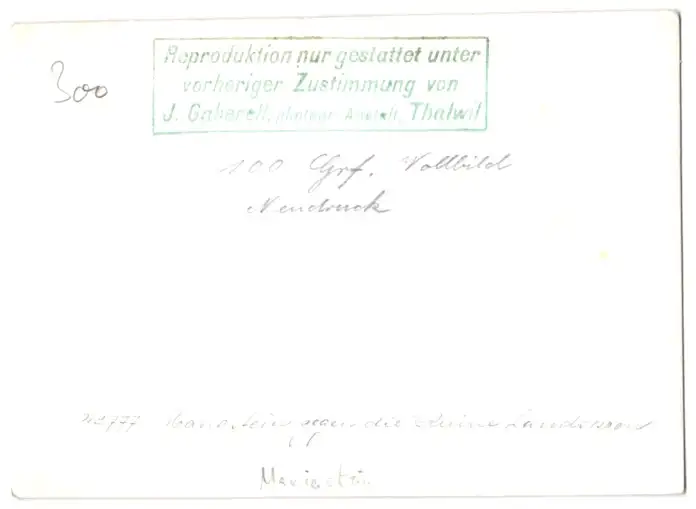 300
Reproduktion nur gestattet unter
vorheriger Zustimmung von
J. Gaberell, photogr. Anstalt, Thalwil
100 Grf. Vollbild
Neudruck
Mariastein gegen die Ruine Landskron
Mariastein